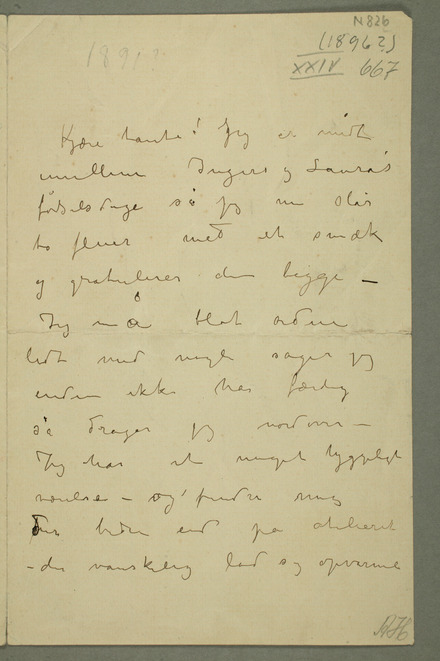 N 826
1891?
(1896?)
XXIV 667
Kjære tante! Jeg er midt
imellem Ingers og Lauras
fødselsdage så jeg nu slår
to fluer med et smæk
og gratulerer dem begge —
Jeg må blot ordne
lidt med nogle sager jeg
endnu ikke har færdig
så drager jeg nordover —
Jeg har et meget hyggeligt
værelse – og finder mig
der bedre end på atelieret
– der vanskelig lod sig opvarme